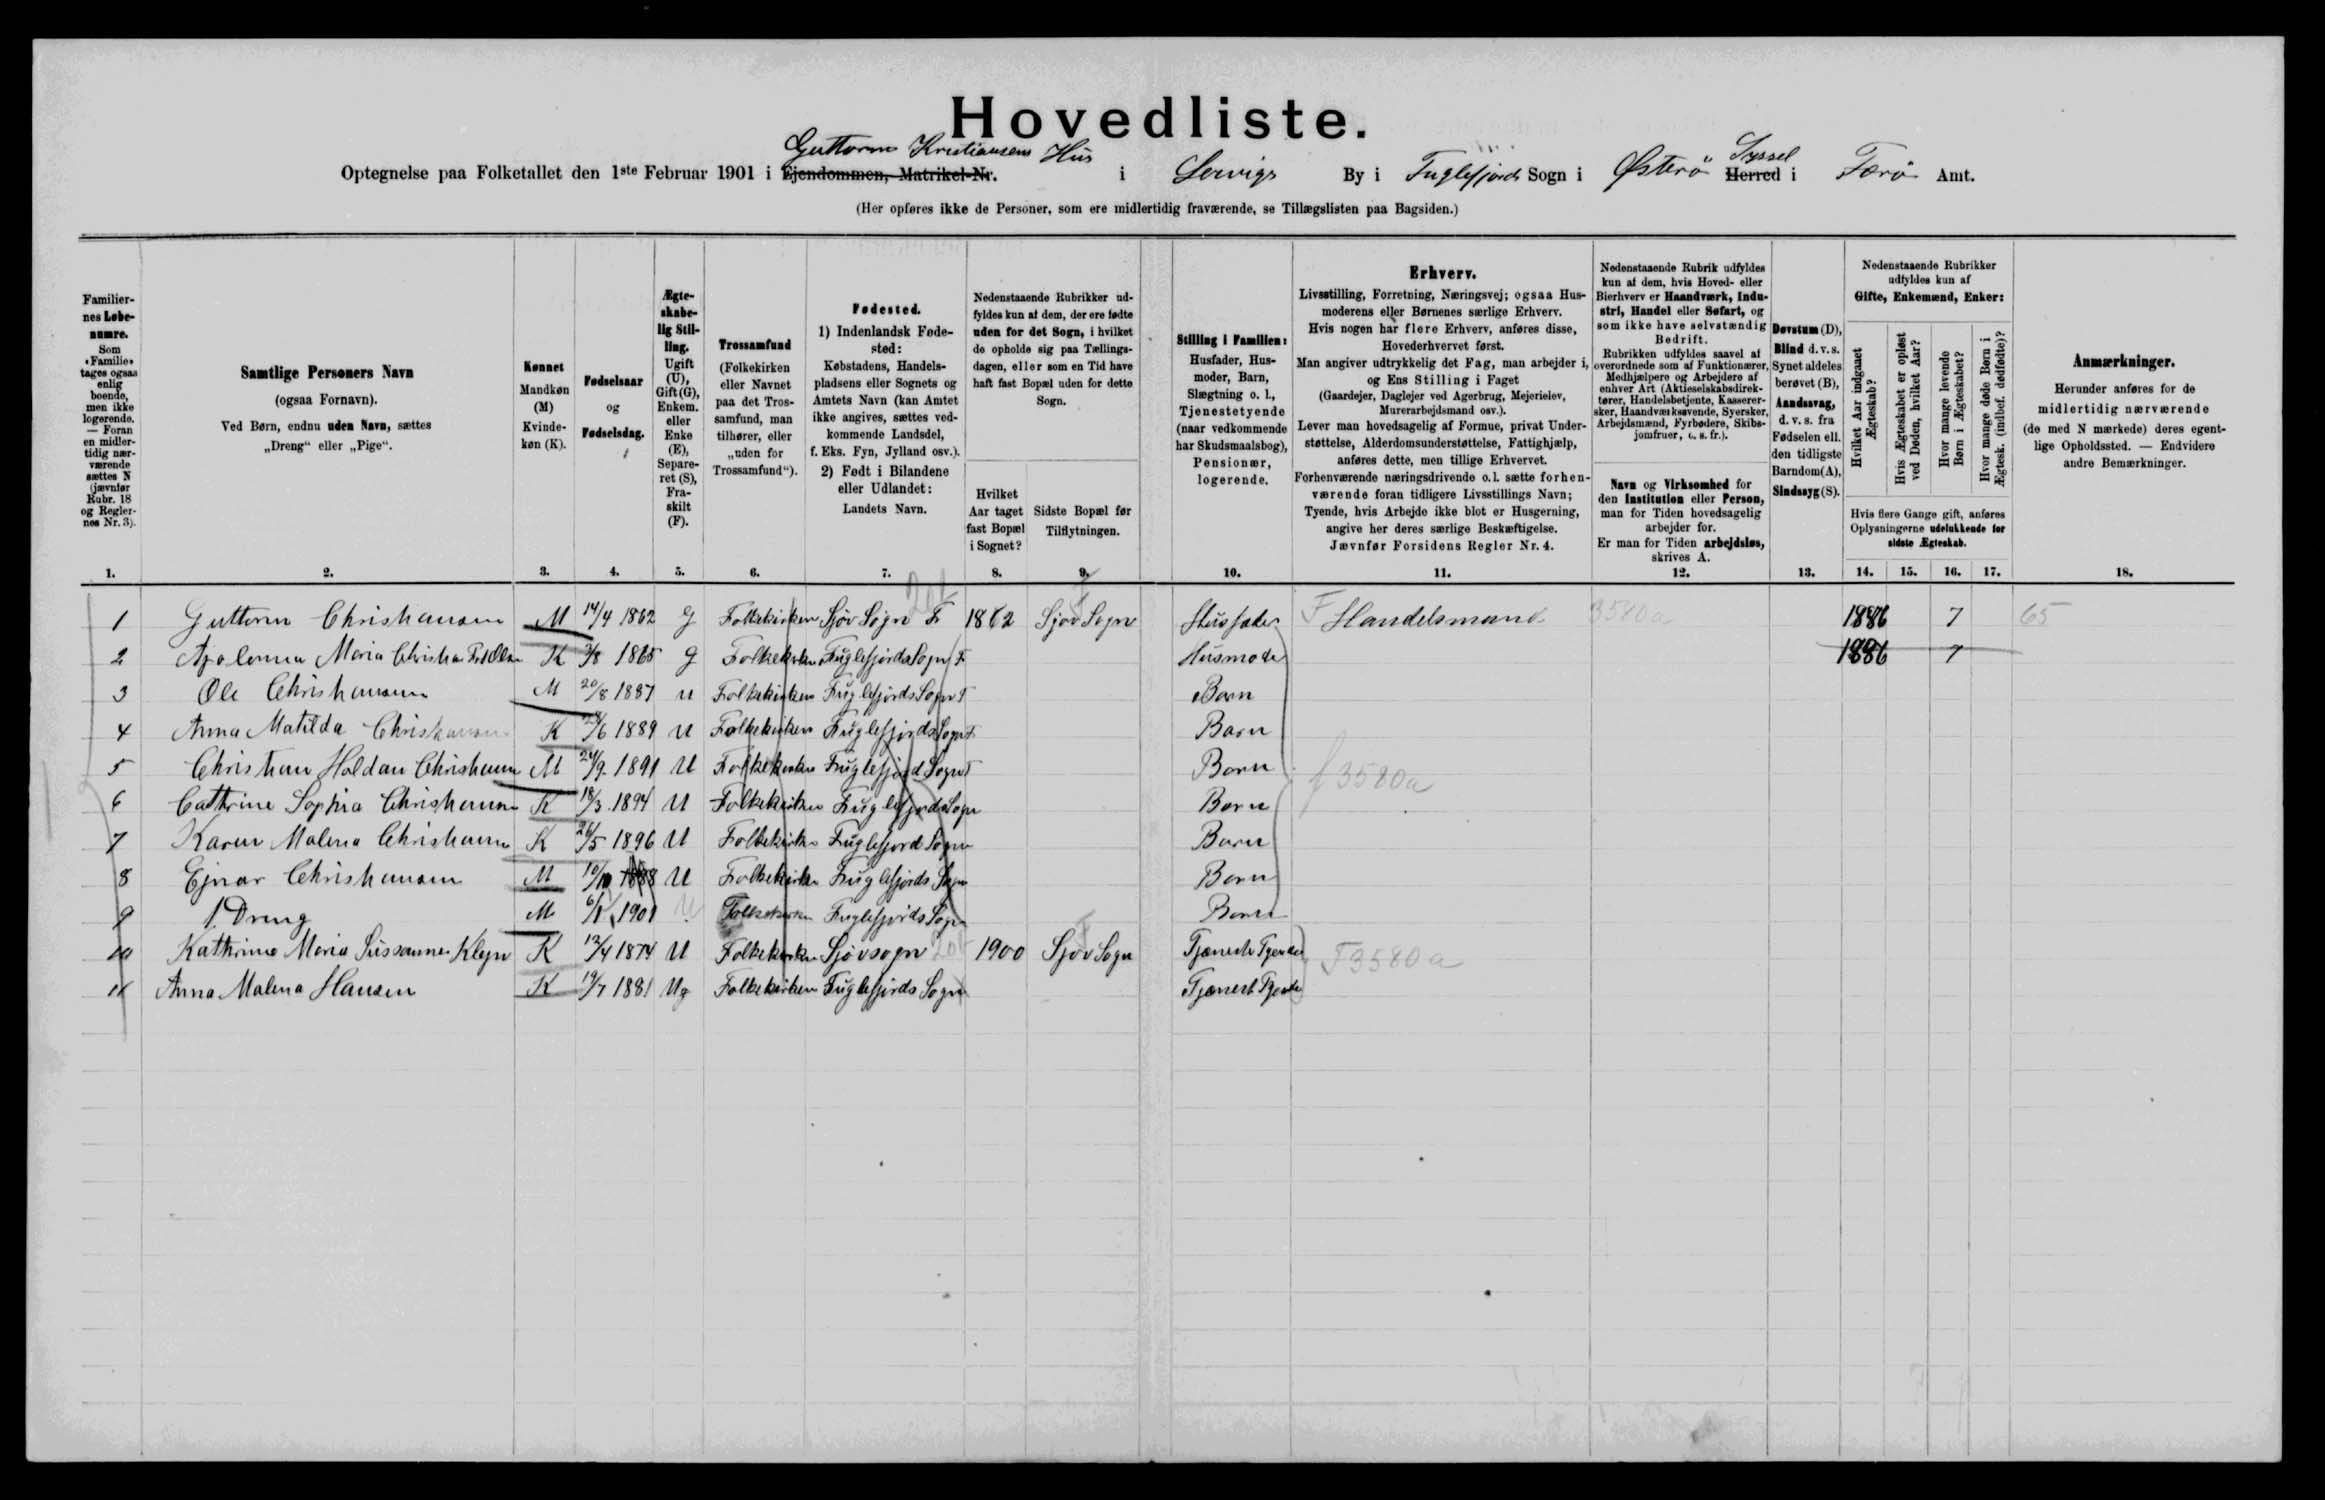 Hovedliste.
Guttorm Kristiansens Hus Syssel
Optegnelse paa Folketallet den 1ste Februar 1901 i Ejendommen, Matrikel-Nr. i Lervigs By i Fuglefjords Sogn i Østerø Herred i Færø Amt.
(Her opføres ikke de Personer, som ere midlertidig fraværende, se Tillægslisten paa Bagsiden.)
Familier-
nes Løbe-
numre.
Som
»Familie»
tages ogsaa
enlig
boende,
men ikke
logerende.
— Foran
en midler-
tidig nær-
værende
sættes N
(jævnfør
Rubr. 18
og Regler-
nes Nr. 3).
1.
Samtlige Personers Navn
(ogsaa Fornavn).
Ved Børn, endnu uden Navn, sættes
„Dreng“ eller „Pige“.
2.
Kønnet
Mandkøn
(M)
Kvinde-
køn (K).
3.
Fødselsaar
og
Fødselsdag.
4.
Ægte-
skabe-
lig Stil-
ling.
Ugift
(U),
Gift (G),
Enkem.
eller
Enke
(E),
Separe-
ret (S),
Fra-
skilt
(F).
5.
Trossamfund
(Folkekirken
eller Navnet
paa det Tros-
samfund, man
tilhører, eller
„uden for
Trossamfund“).
6.
Fødested.
1) Indenlandsk Føde-
sted:
Købstadens, Handels-
pladsens eller Sognets og
Amtets Navn (kan Amtet
ikke angives, sættes ved-
kommende Landsdel,
f. Eks. Fyn, Jylland osv.).
2) Født i Bilandene
eller Udlandet:
Landets Navn.
7.
Nedenstaaende Rubrikker ud-
fyldes kun af dem, der ere fødte
uden for det Sogn, i hvilket
de opholde sig paa Tællings-
dagen, eller som en Tid have
haft fast Bopæl uden for dette
Sogn.
Hvilket
Aar taget
fast Bopæl
i Sognet?
8.
Sidste Bopæl før
Tilflytningen.
9.
Stilling i Familien:
Husfader, Hus-
moder, Barn,
Slægtning o. l.,
Tjenestetyende
(naar vedkommende
har Skudsmaalsbog),
Pensionær,
logerende.
10.
Erhverv.
Livsstilling, Forretning, Næringsvej; ogsaa Hus-
moderens eller Børnenes særlige Erhverv.
Hvis nogen har flere Erhverv, anføres disse,
Hovederhvervet først.
Man angiver udtrykkelig det Fag, man arbejder i,
og Ens Stilling i Faget
(Gaardejer, Daglejer ved Agerbrug, Mejerielev,
Murerarbejdsmand osv.).
Lever man hovedsagelig af Formue, privat Under-
støttelse, Alderdomsunderstøttelse, Fattighjælp,
anføres dette, men tillige Erhvervet.
Forhenværende næringsdrivende o.l. sætte forhen-
værende foran tidligere Livsstillings Navn;
Tyende, hvis Arbejde ikke blot er Husgerning,
angive her deres særlige Beskæftigelse.
Jævnfør Forsidens Regler Nr. 4.
11.
Nedenstaaende Rubrik udfyldes
kun af dem, hvis Hoved- eller
Bierhverv er Haandværk, Indu-
stri, Handel eller Søfart, og
som ikke have selvstændig
Bedrift.
Rubrikken udfyldes saavel af
overordnede som af Funktionærer,
Medhjælpere og Arbejdere af
enhver Art (Aktieselskabsdirek-
tører, Handelsbetjente, Kasserer-
sker, Haandværksøvende, Syersker,
Arbejdsmænd, Fyrbødere, Skibs-
jomfruer, o. s. fr.).
Navn og Virksomhed for
den Institution eller Person,
man for Tiden hovedsagelig
arbejder for.
Er man for Tiden arbejdsløs,
skrives A.
12.
Døvstum (D),
Blind d. v. s.
Synet aldeles
berøvet (B),
Aandssvag,
d. v. s. fra
Fødselen ell.
den tidligste
Barndom (A),
Sindssyg (S).
13.
Nedenstaaende Rubrikker
udfyldes kun af
Gifte, Enkemænd, Enker:
Hvilket Aar indgaaet
Ægteskab?
Hvis Ægteskabet er opløst
ved Døden, hvilket Aar?
Hvor mange levende
Børn i Ægteskabet?
Hvor mange døde Børn i
Ægtesk. (indbef. dødfødte)?
Hvis flere Gange gift, anføres
Oplysningerne udelukkende for
sidste Ægteskab.
14. 15. 16. 17.
Anmærkninger.
Herunder anføres for de
midlertidig nærværende
(de med N mærkede) deres egent-
lige Opholdssted. — Endvidere
andre Bemærkninger.
18.
1 Guttorm Christiansen M 14/4 1862 G Folkekirken Sjøv Sogn F 1862 Sjov Sogn Husfader F Handelsmand 3580a 1886 7 65
2 Apolonna Maria K /8 1865 g Folkekirken Fuglefjords Sogn F Husmoder 1886 7
3 Ole Christiansen M 20/8 1887 u Folkekirken Fuglefjords Sogn F Barn
4 Anna Matilda Christiansen K /6 1889 U Folkekirken Fuglefjords Sogn F Barn
5 Christian Haldan Christiansen M 24/9 1891 U Folkekirken Fuglefjord Sogn F Barn f 3580a
6 Cathrine Sophia Christiansen K 18/3 1894 U Folkekirken Fuglefjords Sogn Barn
7 Karen Malena Christiansen K 26/5 1896 U Folkekirken Fuglefjord Sogn Barn
8 Ejnar Christiansen M 10/10 1898 U Folkekirken Fuglefjords Sogn Barn
9 1 Dreng M 6/1 1901 U Folkekirken Fuglefjords Sogn Barn
10 Kathrina Maria Sussanna Klejn K 12/4 1874 U Folkekirken Sjóvsogn 1900 Sjov Sogn Tjæneste Tjende F3580a
11 Anna Malena Hansen K 19/7 1881 Ug Folkekirken Fuglefjords Sogn Tjænest Tjende